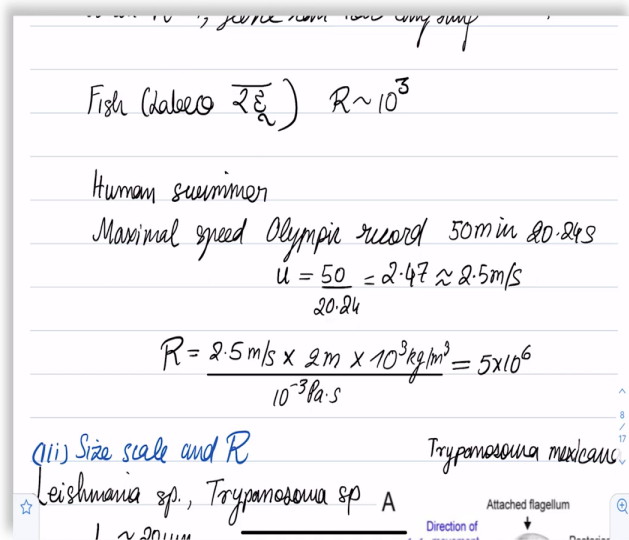 Fish (Labeo रहू) R ~ 10³
Human swimmer
Maximal speed Olympic record 50m in 20.24s
u = 50/20.24 = 2.47 ≈ 2.5m/s
R = 2.5 m/s × 2m × 10³kg/m³ / 10⁻³Pa·s = 5×10⁶
(iii) Size scale and R
Trypanosoma mexicana
Leishmania sp., Trypanosoma sp
A
Attached flagellum
Direction of
L ~ 20µm
8
/
17